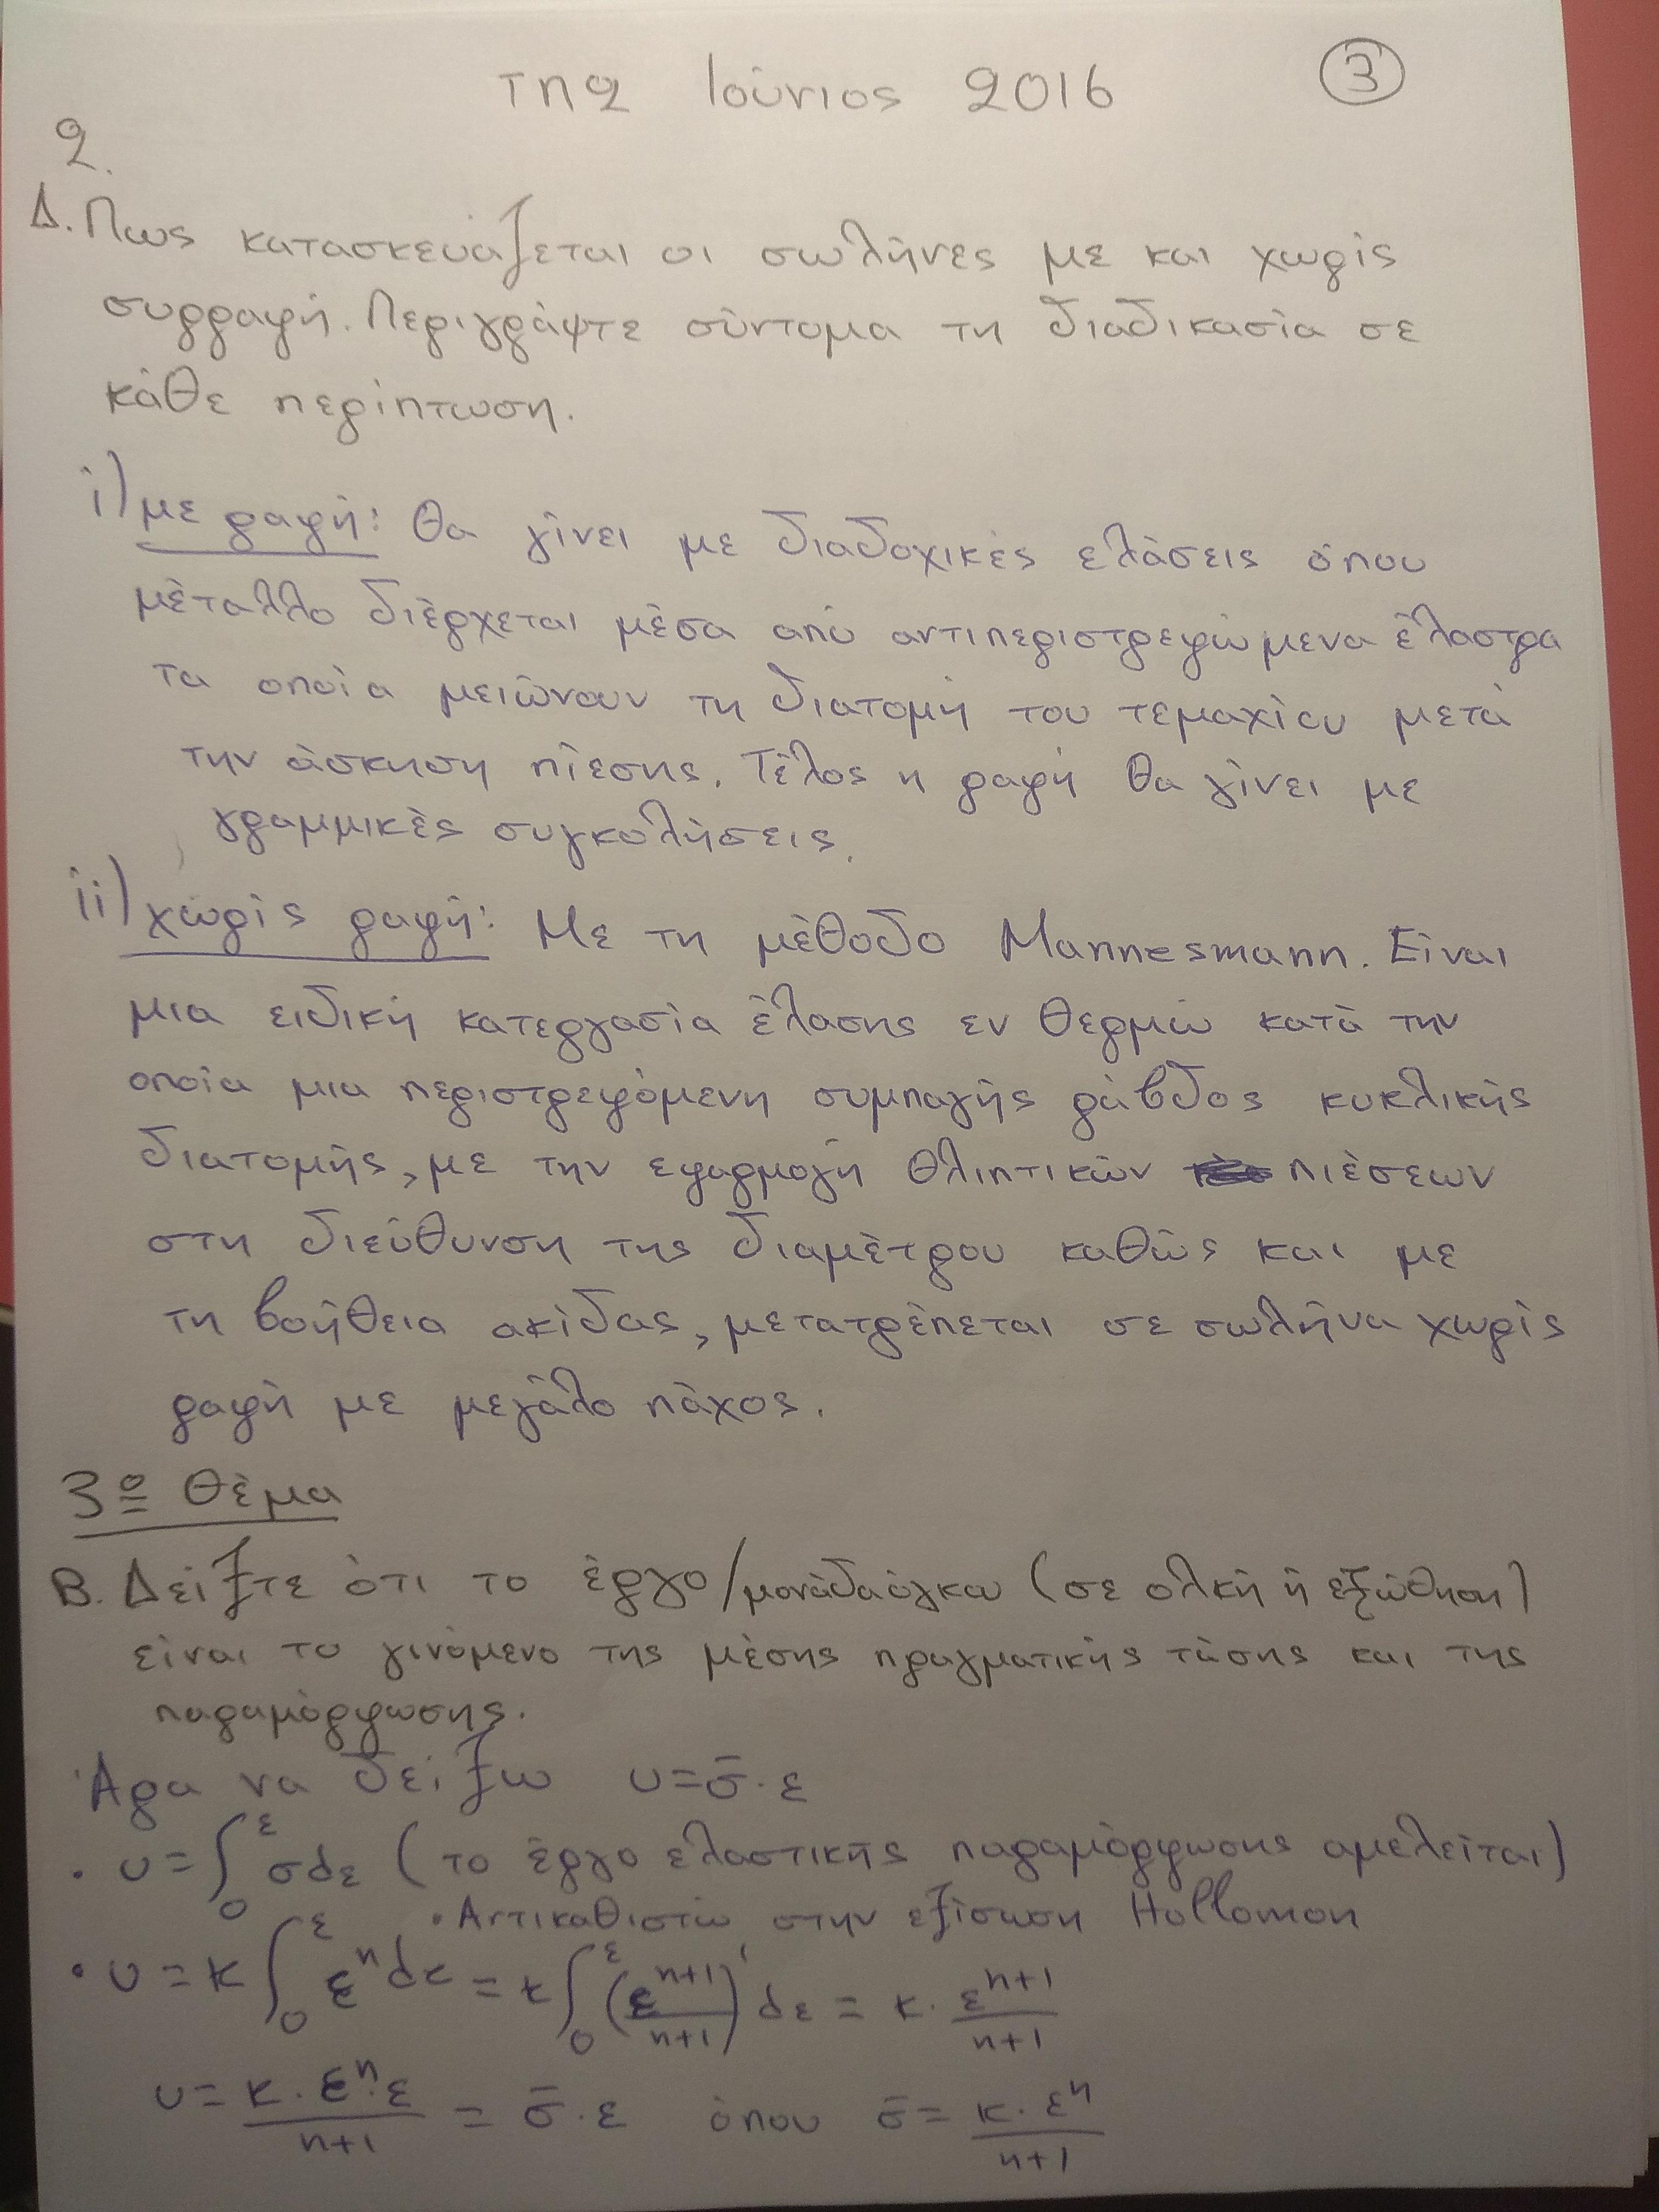 ΤΠ2 Ιούνιος 2016 3
2.
Δ. Πως κατασκευάζεται οι σωλήνες με και χωρίς
συρραφή. Περιγράψτε σύντομα τη διαδικασία σε
κάθε περίπτωση.
i) με ραφή: Θα γίνει με διαδοχικές ελάσεις όπου
μέταλλο διέρχεται μέσα από αντιπεριστρεφώμενα έλαστρα
τα οποία μειώνουν τη διατομή του τεμαχίου μετά
την άσκηση πίεσης. Τέλος η ραφή θα γίνει με
γραμμικές συγκολήσεις.
ii) χωρίς ραφή: Με τη μέθοδο Mannesmann. Είναι
μια ειδική κατεργασία έλασης εν θερμώ κατά την
οποία μια περιστρεφόμενη συμπαγής ράβδος κυκλικής
διατομής, με την εφαρμογή θλιπτικών πιέσεων
στη διεύθυνση της διαμέτρου καθώς και με
τη βοήθεια ακίδας, μετατρέπεται σε σωλήνα χωρίς
ραφή με μεγάλο πάχος.
3º Θέμα
Β. Δείξτε ότι το έργο/μονάδα όγκου (σε ολκή ή εξώθηση)
είναι το γινόμενο της μέσης πραγματικής τάσης και της
παραμόρφωσης.
Άρα να δείξω υ=σ̄·ε
· υ=∫₀^ε σdε (το έργο ελαστικής παραμόρφωσης αμελείται)
· Αντικαθιστώ στην εξίσωση Hollomon
· υ = κ∫₀^ε ε^n dε = κ∫₀^ε (ε^(n+1)/(n+1))' dε = κ · ε^(n+1)/(n+1)
υ = κ·ε^n·ε/(n+1) = σ̄·ε όπου σ̄ = κ·ε^n/(n+1)